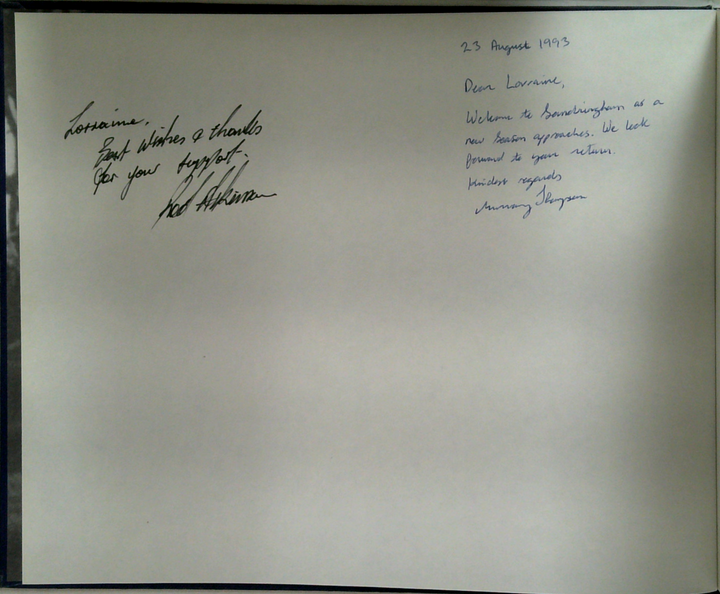 Lorraine,
Best Wishes & thanks
for your support.
23 August 1993
Dear Lorraine,
Welcome to Sandringham as a
new Season approaches. We look
forward to your return.
Kindest regards
Murray Thompson